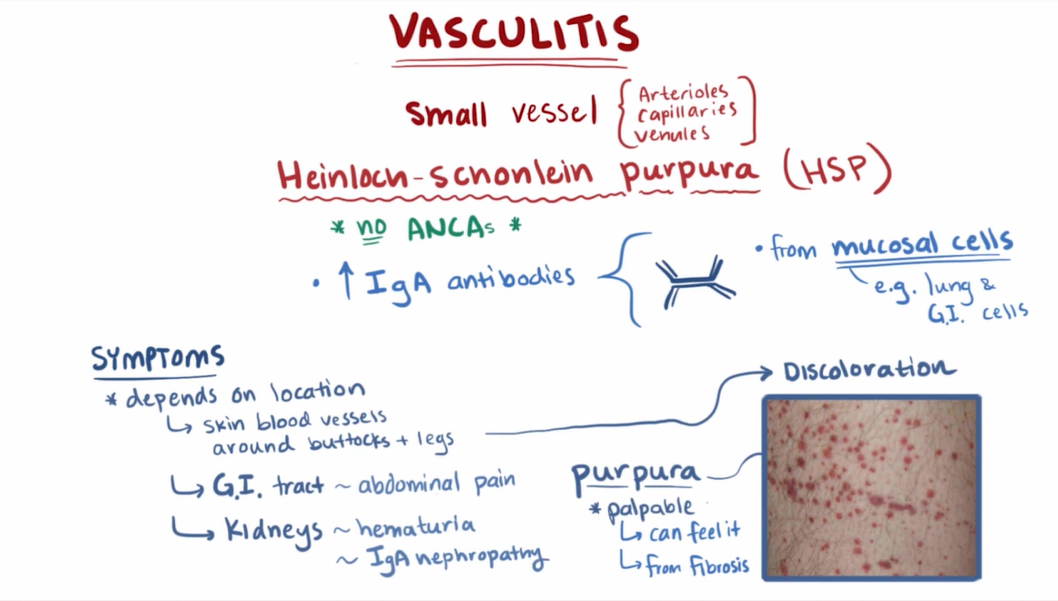 VASCULITIS
Small vessel
Arterioles
Capillaries
venules
Heinloch-schonlein purpura (HSP)
* no ANCAs *
• ↑ IgA antibodies
• from mucosal cells
e.g. lung &
G.I. cells
SYMPTOMS
* depends on location
↳ skin blood vessels
around buttocks + legs
↳ G.I. tract ~ abdominal pain
↳ Kidneys ~ hematuria
~ IgA nephropathy
Discoloration
purpura
* palpable
↳ can feel it
↳ from fibrosis